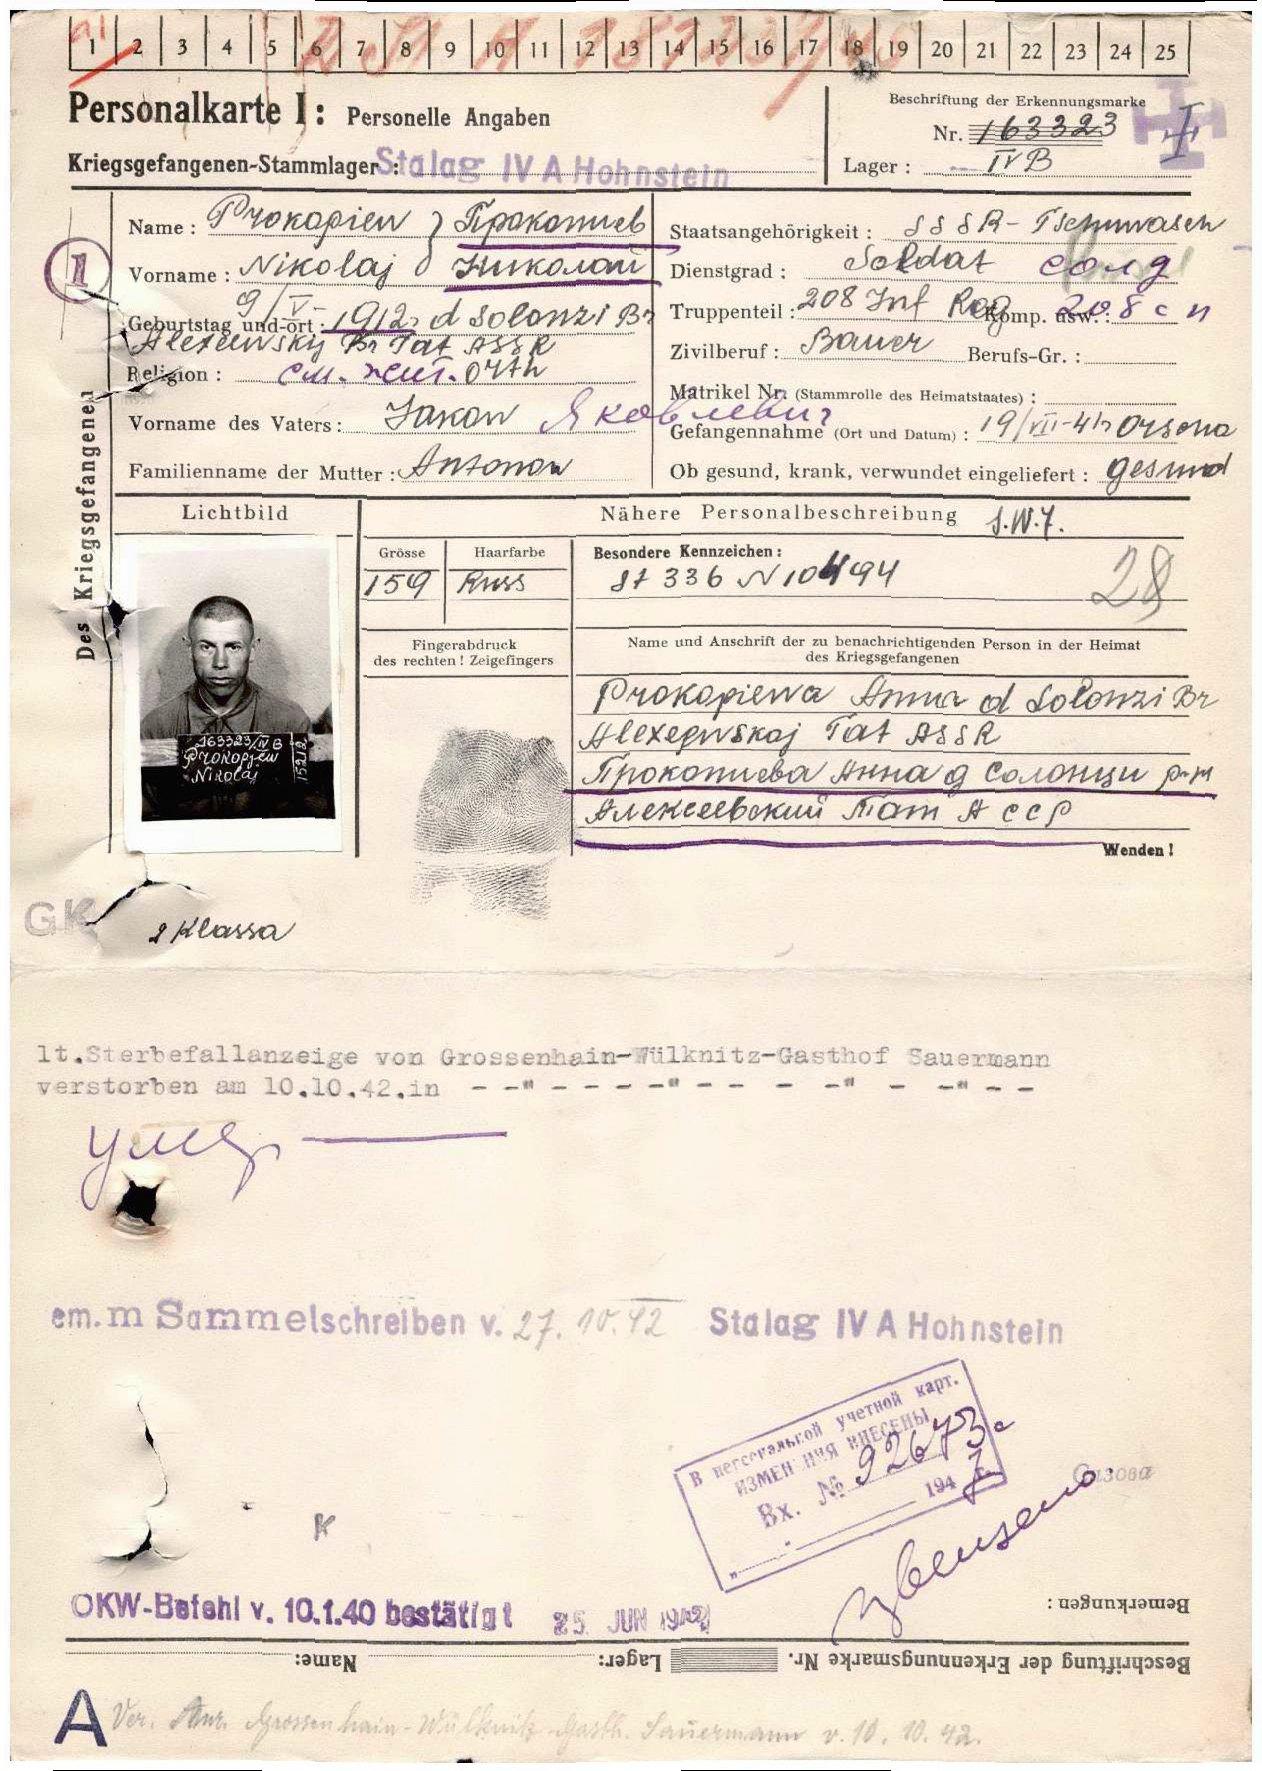 1 2 3 4 5 6 7 8 9 10 11 12 13 14 15 16 17 18 19 20 21 22 23 24 25
Personalkarte I: Personelle Angaben
Beschriftung der Erkennungsmarke
Nr. 163323
Kriegsgefangenen-Stammlager: Stalag IV A Hohnstein
Lager: IV B
1
Des Kriegsgefangenen
Name: Prokopiew Прокопиев
Vorname: Nikolaj Николай
Geburtstag und -ort: 9/V-1912 d Solonzi Br
Alexeewskij Br Tat ASSR
Religion: Orth
Vorname des Vaters: Jakow Яковлевич
Familienname der Mutter: Antonow
Staatsangehörigkeit: SSSR-Tschuwasch
Dienstgrad: Soldat солд
Truppenteil: 208 Inf Reg Komp. usw.: 208 с п
Zivilberuf: Bauer Berufs-Gr.:
Matrikel Nr. (Stammrolle des Heimatstaates):
Gefangennahme (Ort und Datum): 19/VII-41 Orscha
Ob gesund, krank, verwundet eingeliefert: gesund
Lichtbild
Nähere Personalbeschreibung
Grösse
159
Haarfarbe
Russ
Besondere Kennzeichen:
St 336 N 10494
28
163323/IV B
Prokopjew
Nikolaj
Fingerabdruck
des rechten! Zeigefingers
Name und Anschrift der zu benachrichtigenden Person in der Heimat
des Kriegsgefangenen
Prokopiewa Anna d Solonzi Br
Alexeewskaj Tat ASSR
Прокопиева Анна д Солонци р-н
Алексеевский Тат АССР
Wenden!
GK
2 Klassa
lt.Sterbefallanzeige von Grossenhain-Wülknitz-Gasthof Sauermann
verstorben am 10.10.42.in - -"- - - -"- - - -" - -"- -
умер
em. m Sammelschreiben v. 27.10.42 Stalag IV A Hohnstein
В персональной учетной карт.
ИЗМЕНЕНИЯ ВНЕСЕНЫ
Вх. № 92673с
194 7
Сизова
K
OKW-Befehl v. 10.1.40 bestätigt 25. JUN 1942
Bemerkungen:
Beschriftung der Erkennungsmarke Nr. Lager: Name:
A Ver. Anz. Grossenhain-Wülknitz-Gasth. Sauermann v. 10.10.42.